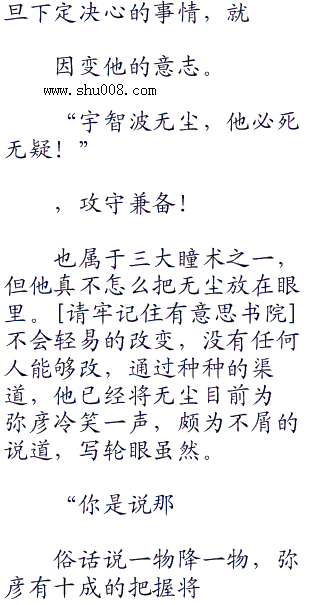 旦下定决心的事情，就
因变他的意志。
www.shu008.com
“宇智波无尘，他必死
无疑！”
，攻守兼备！
也属于三大瞳术之一，
但他真不怎么把无尘放在眼
里。[请牢记住有意思书院]
不会轻易的改变，没有任何
人能够改，通过种种的渠
道，他已经将无尘目前为
弥彦冷笑一声，颇为不屑的
说道，写轮眼虽然。
“你是说那
俗话说一物降一物，弥
彦有十成的把握将